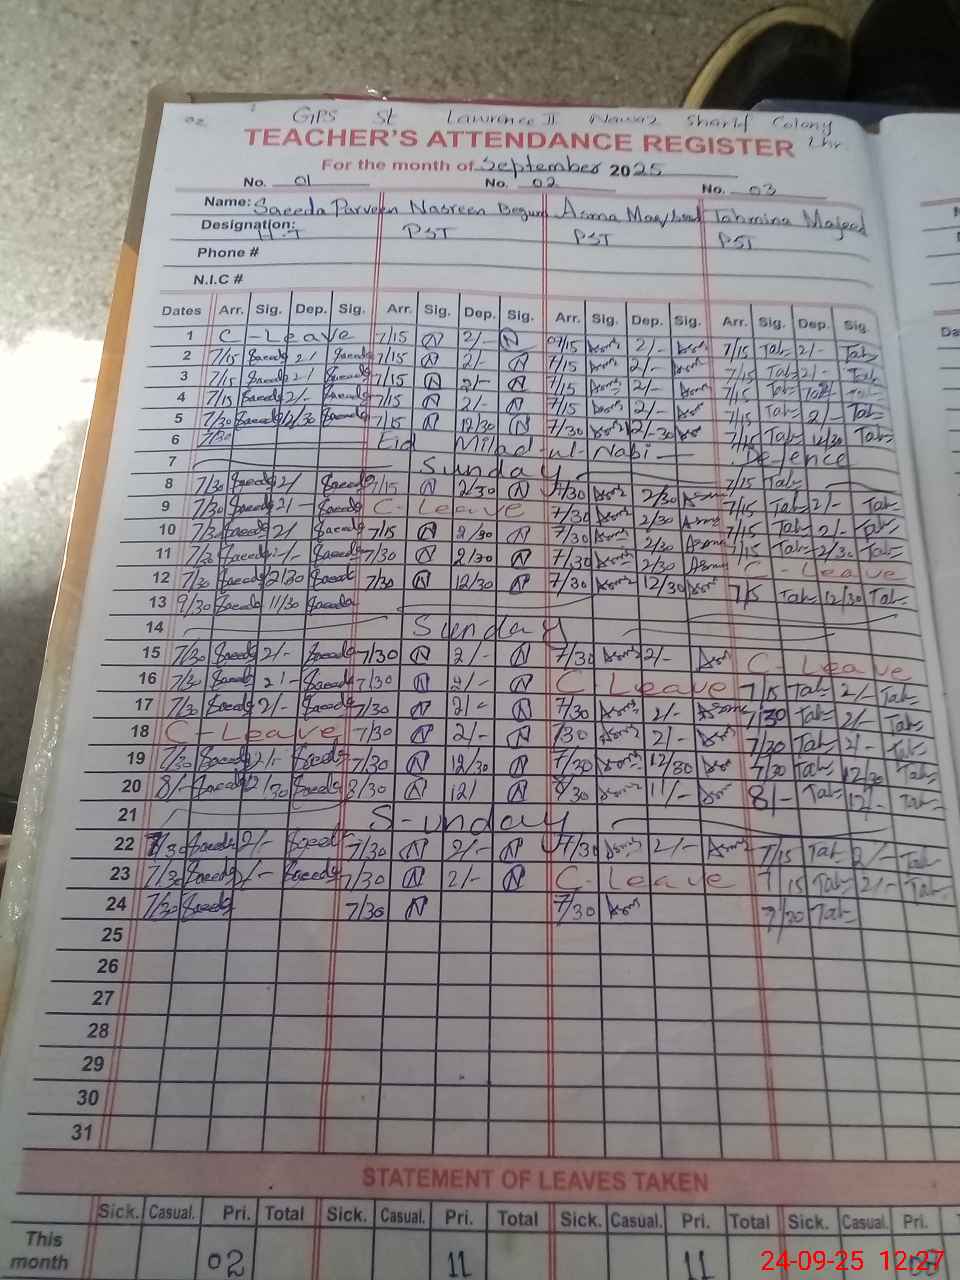 02 GPS St Lawrence II Nawaz Sharif Colony Lhr.
TEACHER'S ATTENDANCE REGISTER
For the month of September 2025
No. 01 No. 02 No. 03
Name: Saeeda Parveen Nasreen Begum Asma Tahmina Majeed
Designation: H.T PST PST PST
Phone #
N.I.C #
Dates Arr. Sig. Dep. Sig. Arr. Sig. Dep. Sig. Arr. Sig. Dep. Sig. Arr. Sig. Dep. Sig.
1 C-Leave 7/15 N 2/- N 07/15 Asm 2/- Asm 7/15 Tah 2/- Tah
2 7/15 Saeeda 2/ Saeeda 7/15 N 2/- N 7/15 Asm 2/- Asm 7/15 Tah 2/- Tah
3 7/15 Saeeda 2/ Saeeda 7/15 N 2/- N 7/15 Asm 2/- Asm 7/15 Tah Tah
4 7/15 Saeeda 2/- Saeeda 7/15 N 2/- N 7/15 Asm 2/- Asm 7/15 Tah 2/- Tah
5 7/30 Saeeda 12/30 Saeeda 7/15 N 12/30 N 7/30 Asm 12-30 Asm 7/15 Tah 12/30 Tah
6 7/30 Eid Milad-ul-Nabi Defence
7 Sunday 7/15 Tah
8 7/30 Saeeda 2/ Saeeda 7/15 N 2/30 N 7/30 Asm 2/30 Asma 7/15 Tah 2/- Tah
9 7/30 Saeeda 2/- Saeeda C-Leave 7/30 Asm 2/30 Asma 7/15 Tah 2/- Tah
10 7/30 Saeeda 2/ Saeeda 7/15 N 2/30 N 7/30 Asm 2/30 Asma 7/15 Tah 2/30 Tah
11 7/30 Saeeda 2/- Saeeda 7/30 N 2/30 N 7/30 Asm 2/30 Asma C-Leave
12 7/30 Saeeda 12/30 Saeeda 7/30 N 12/30 N 7/30 Asm 12/30 Asm 7/15 Tah 12/30 Tah
13 9/30 Saeeda 11/30 Saeeda
14 Sunday
15 7/30 Saeeda 2/- Saeeda 7/30 N 2/- N 7/30 Asm 2/- Asm C-Leave
16 7/30 Saeeda 2/- Saeeda 7/30 N 2/- N C-Leave 7/15 Tah 2/ Tah
17 7/30 Saeeda 2/- Saeeda 7/30 N 2/- N 7/30 Asm 2/- Asma 7/30 Tah 2/- Tah
18 C-Leave 7/30 N 2/- N 7/30 Asm 2/- Asm 7/30 Tah 2/- Tah
19 7/30 Saeeda 2/- Saeeda 7/30 N 12/30 N 7/30 Asm 12/30 Asm 7/30 Tah 12/30 Tah
20 8/- Saeeda 12/30 Saeeda 8/30 N 12/ N 8/30 Asm 11/- Asm 8/- Tah 12/- Tah
21 Sunday
22 7/30 Saeeda 2/- Saeeda 7/30 N 2/- N 7/30 Asm 2/- Asma 7/15 Tah 2/- Tah
23 7/30 Saeeda 2/- Saeeda 7/30 N 2/- N C-Leave 7/15 Tah 2/- Tah
24 7/30 Saeeda 7/30 N 7/30 Asm 7/30 Tah
25
26
27
28
29
30
31
STATEMENT OF LEAVES TAKEN
Sick. Casual. Pri. Total Sick. Casual. Pri. Total Sick. Casual. Pri. Total Sick. Casual. Pri.
This month 02 11 11
24-09-25 12:27